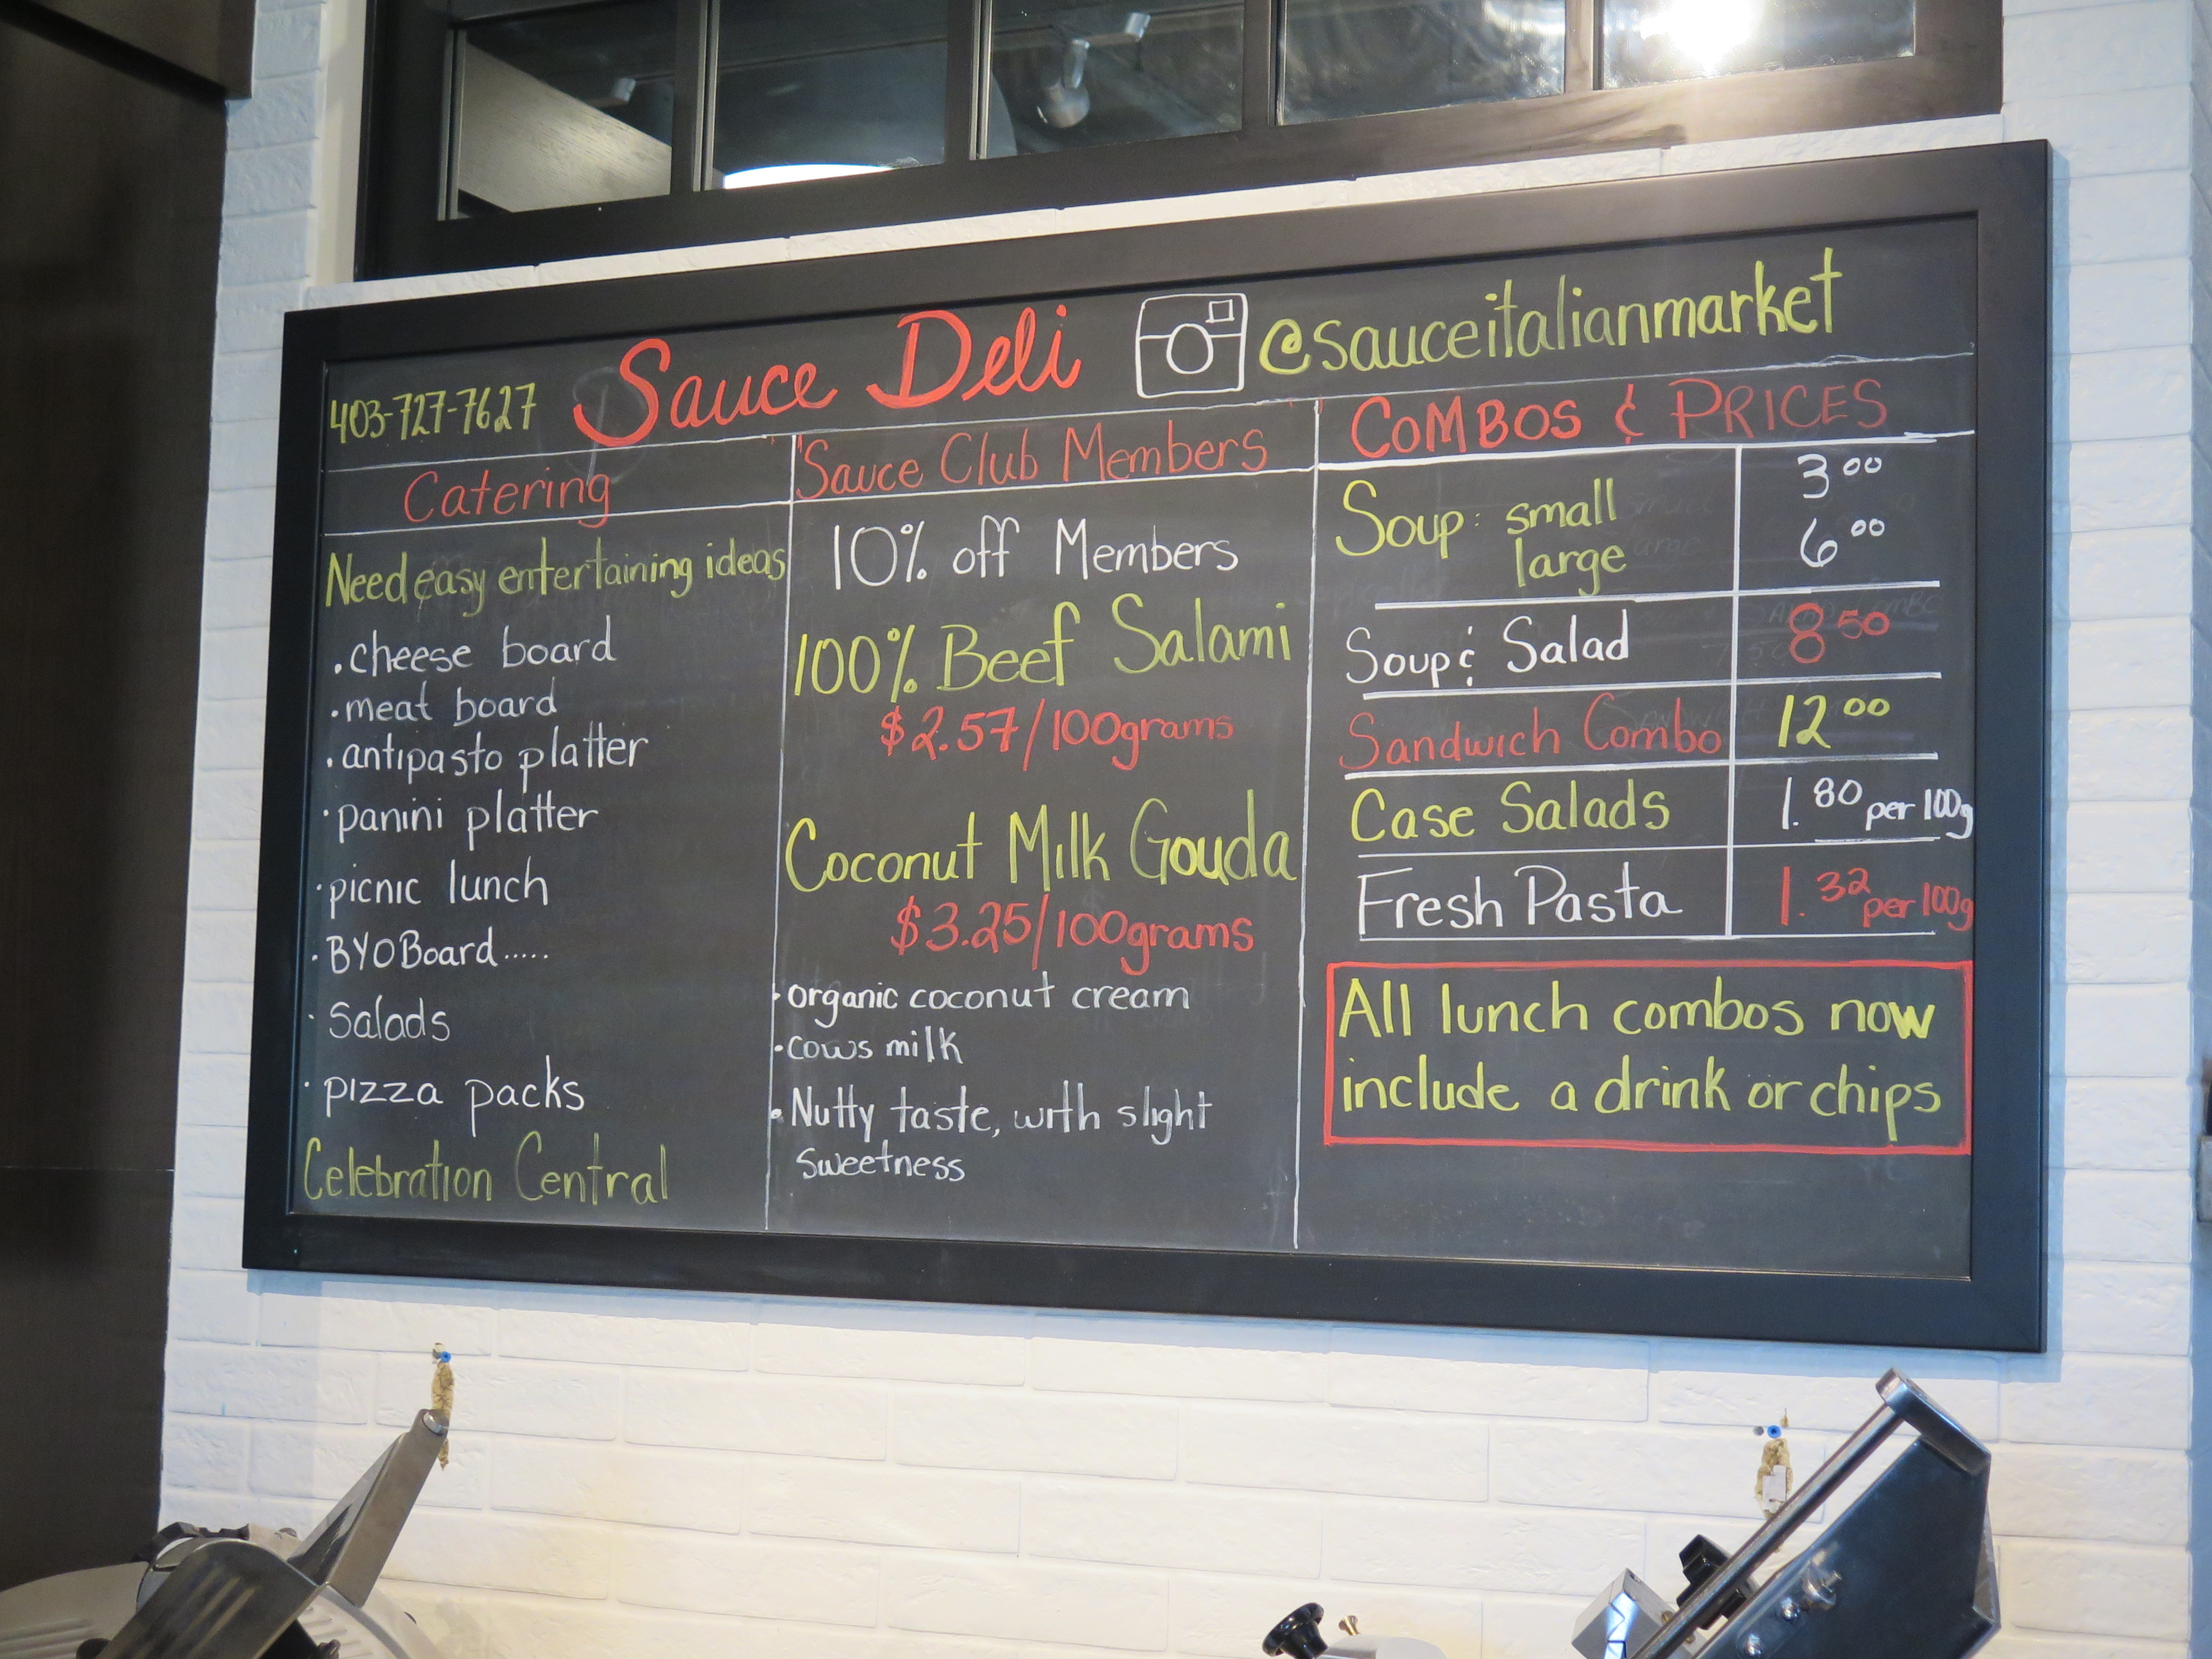 403-727-7627 Sauce Deli @sauceitalianmarket
Catering
Need easy entertaining ideas
· cheese board
· meat board
· antipasto platter
· panini platter
· picnic lunch
· BYOBoard.....
· Salads
· pizza packs
Celebration Central
Sauce Club Members
10% off Members
100% Beef Salami
$2.57/100grams
Coconut Milk Gouda
$3.25/100grams
· organic coconut cream
· cows milk
· Nutty taste, with slight
sweetness
COMBOS & PRICES
Soup: small 3 00
large 6 00
Soup & Salad 8 50
Sandwich Combo 12 00
Case Salads 1.80 per 100g
Fresh Pasta 1.32 per 100g
All lunch combos now
include a drink or chips